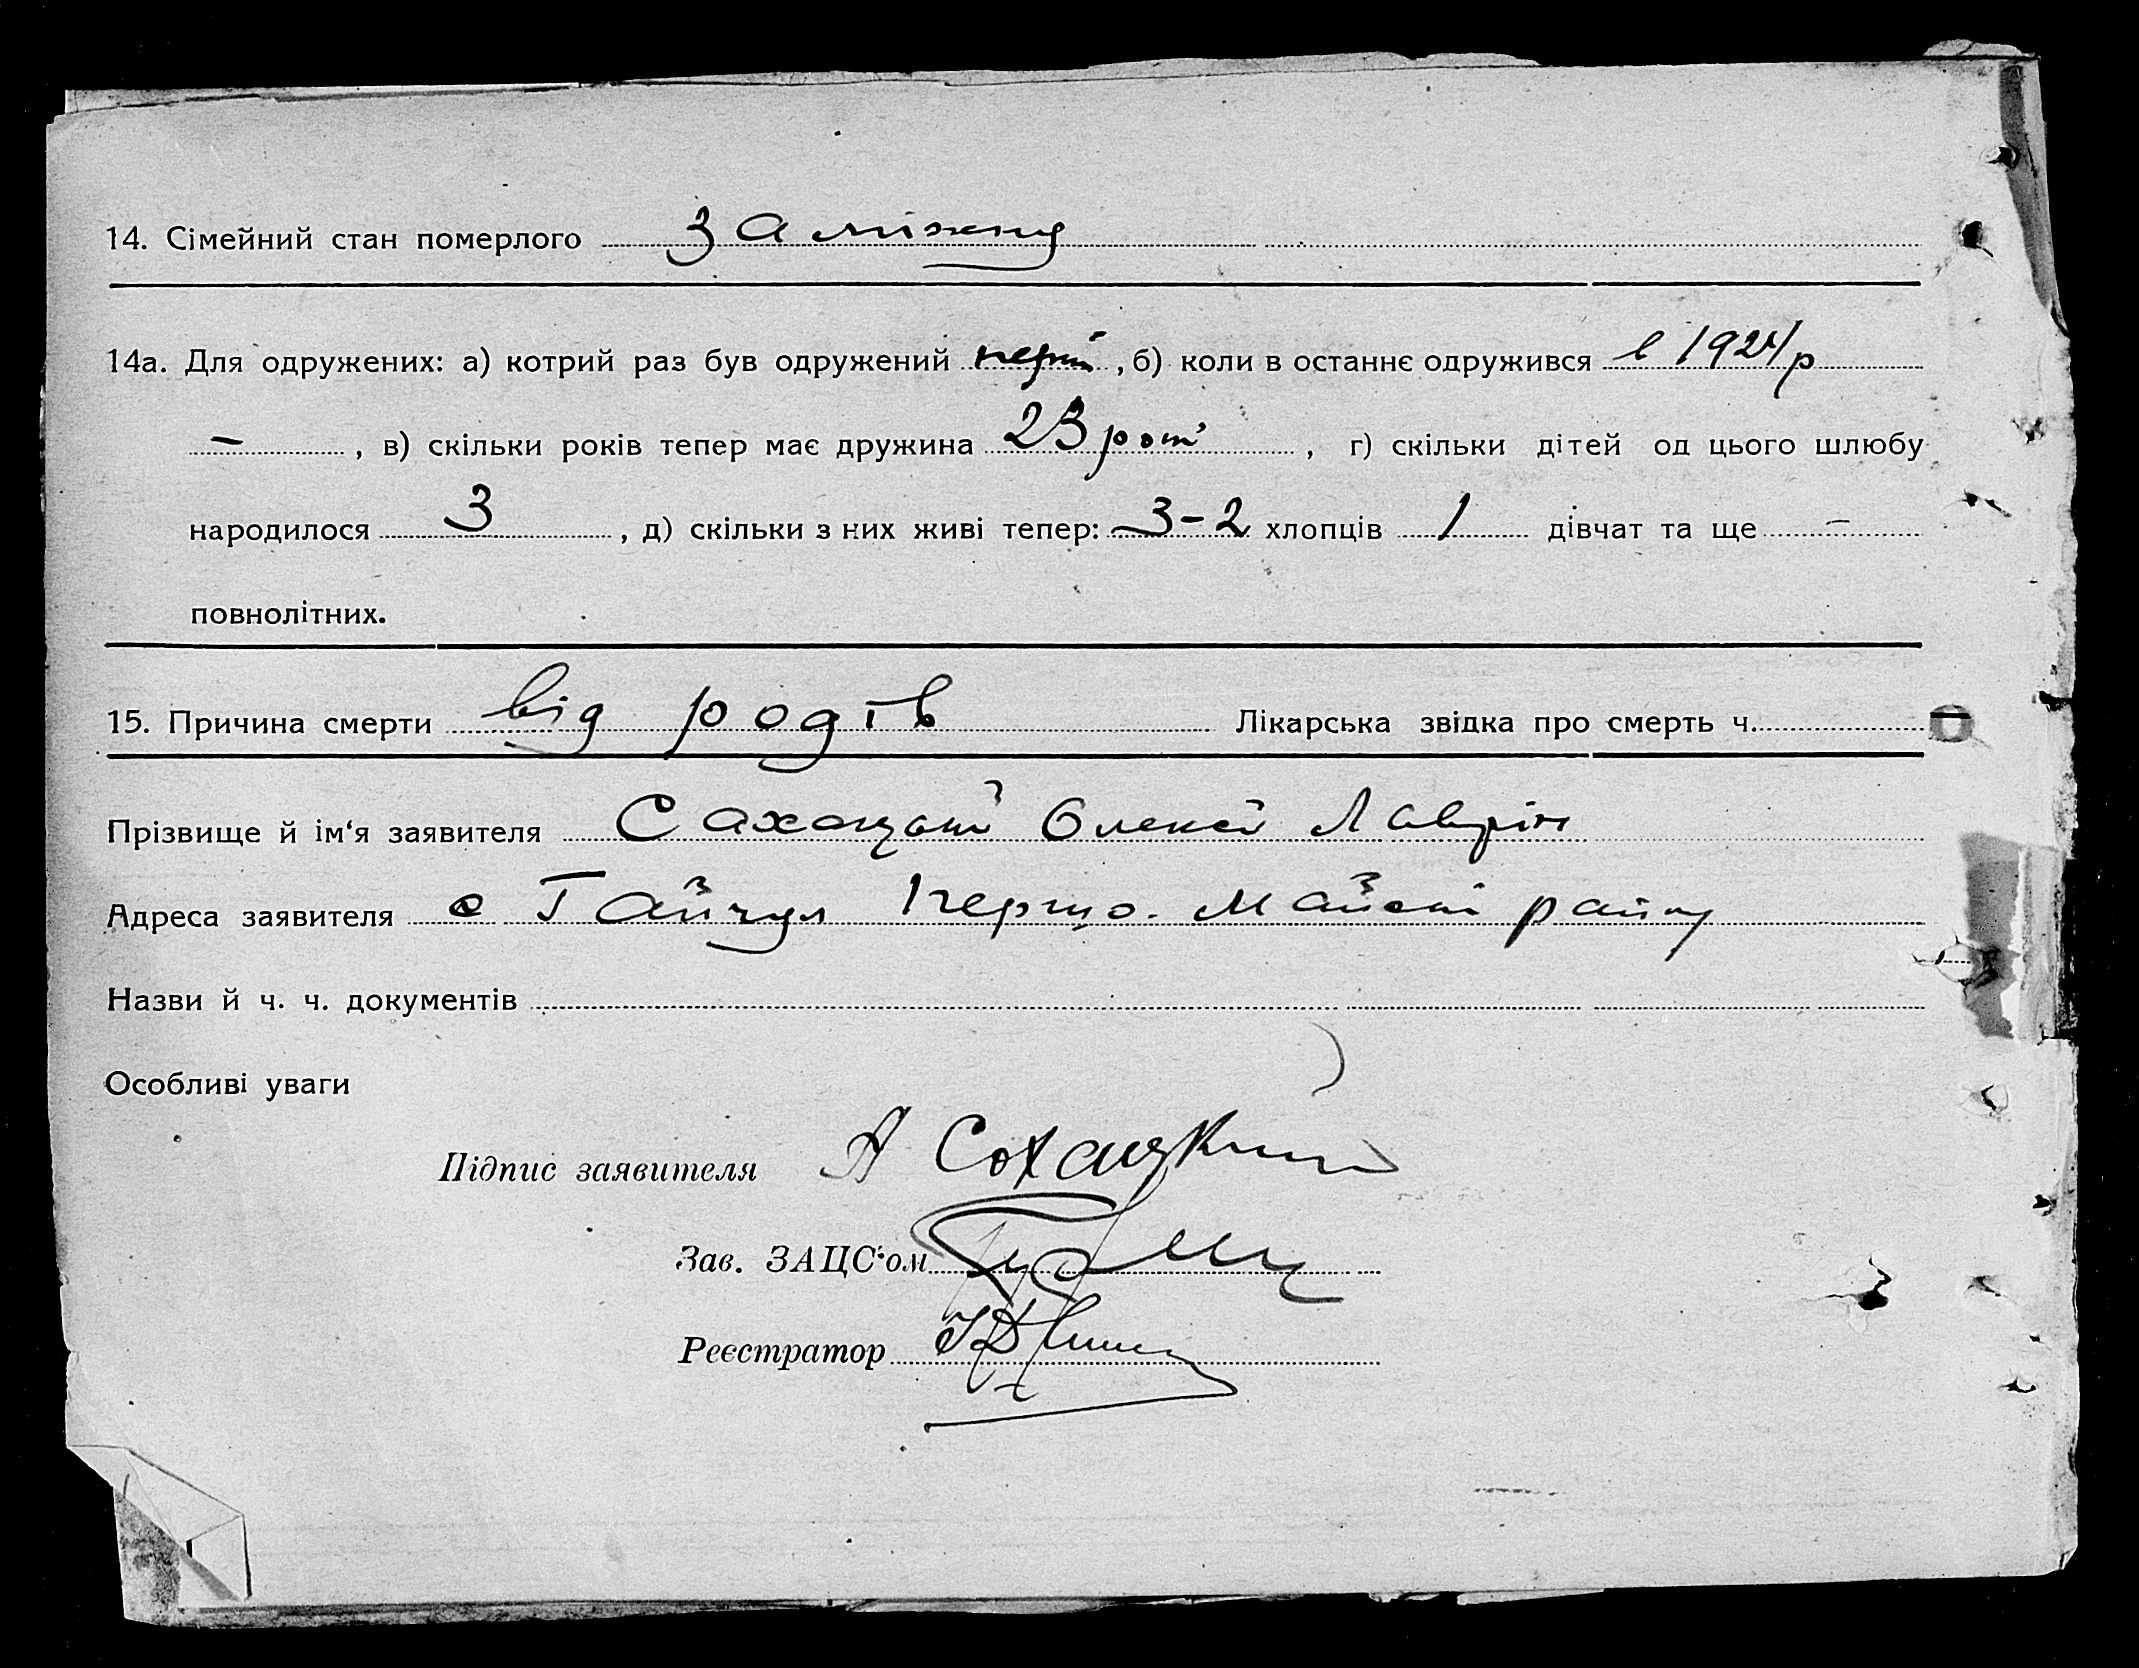 14. Сімейний стан померлого заміжня
14а. Для одружених: а) котрий раз був одружений перш , б) коли в останнє одружився в 1924 р
– , в) скільки років тепер має дружина 23 рот , г) скільки дітей од цього шлюбу
народилося 3 , д) скільки з них живі тепер: 3-2 хлопців 1 дівчат та ще –
повнолітних.
15. Причина смерти від родів Лікарська звідка про смерть ч.
Прізвище й ім‘я заявителя Сахацький Олексій Лаврін
Адреса заявителя с Гайчул Першо. Майські райну
Назви й ч. ч. документів
Особливі уваги
Підпис заявителя А Сохацкий
Зав. ЗАЦС‘ом
Реєстратор